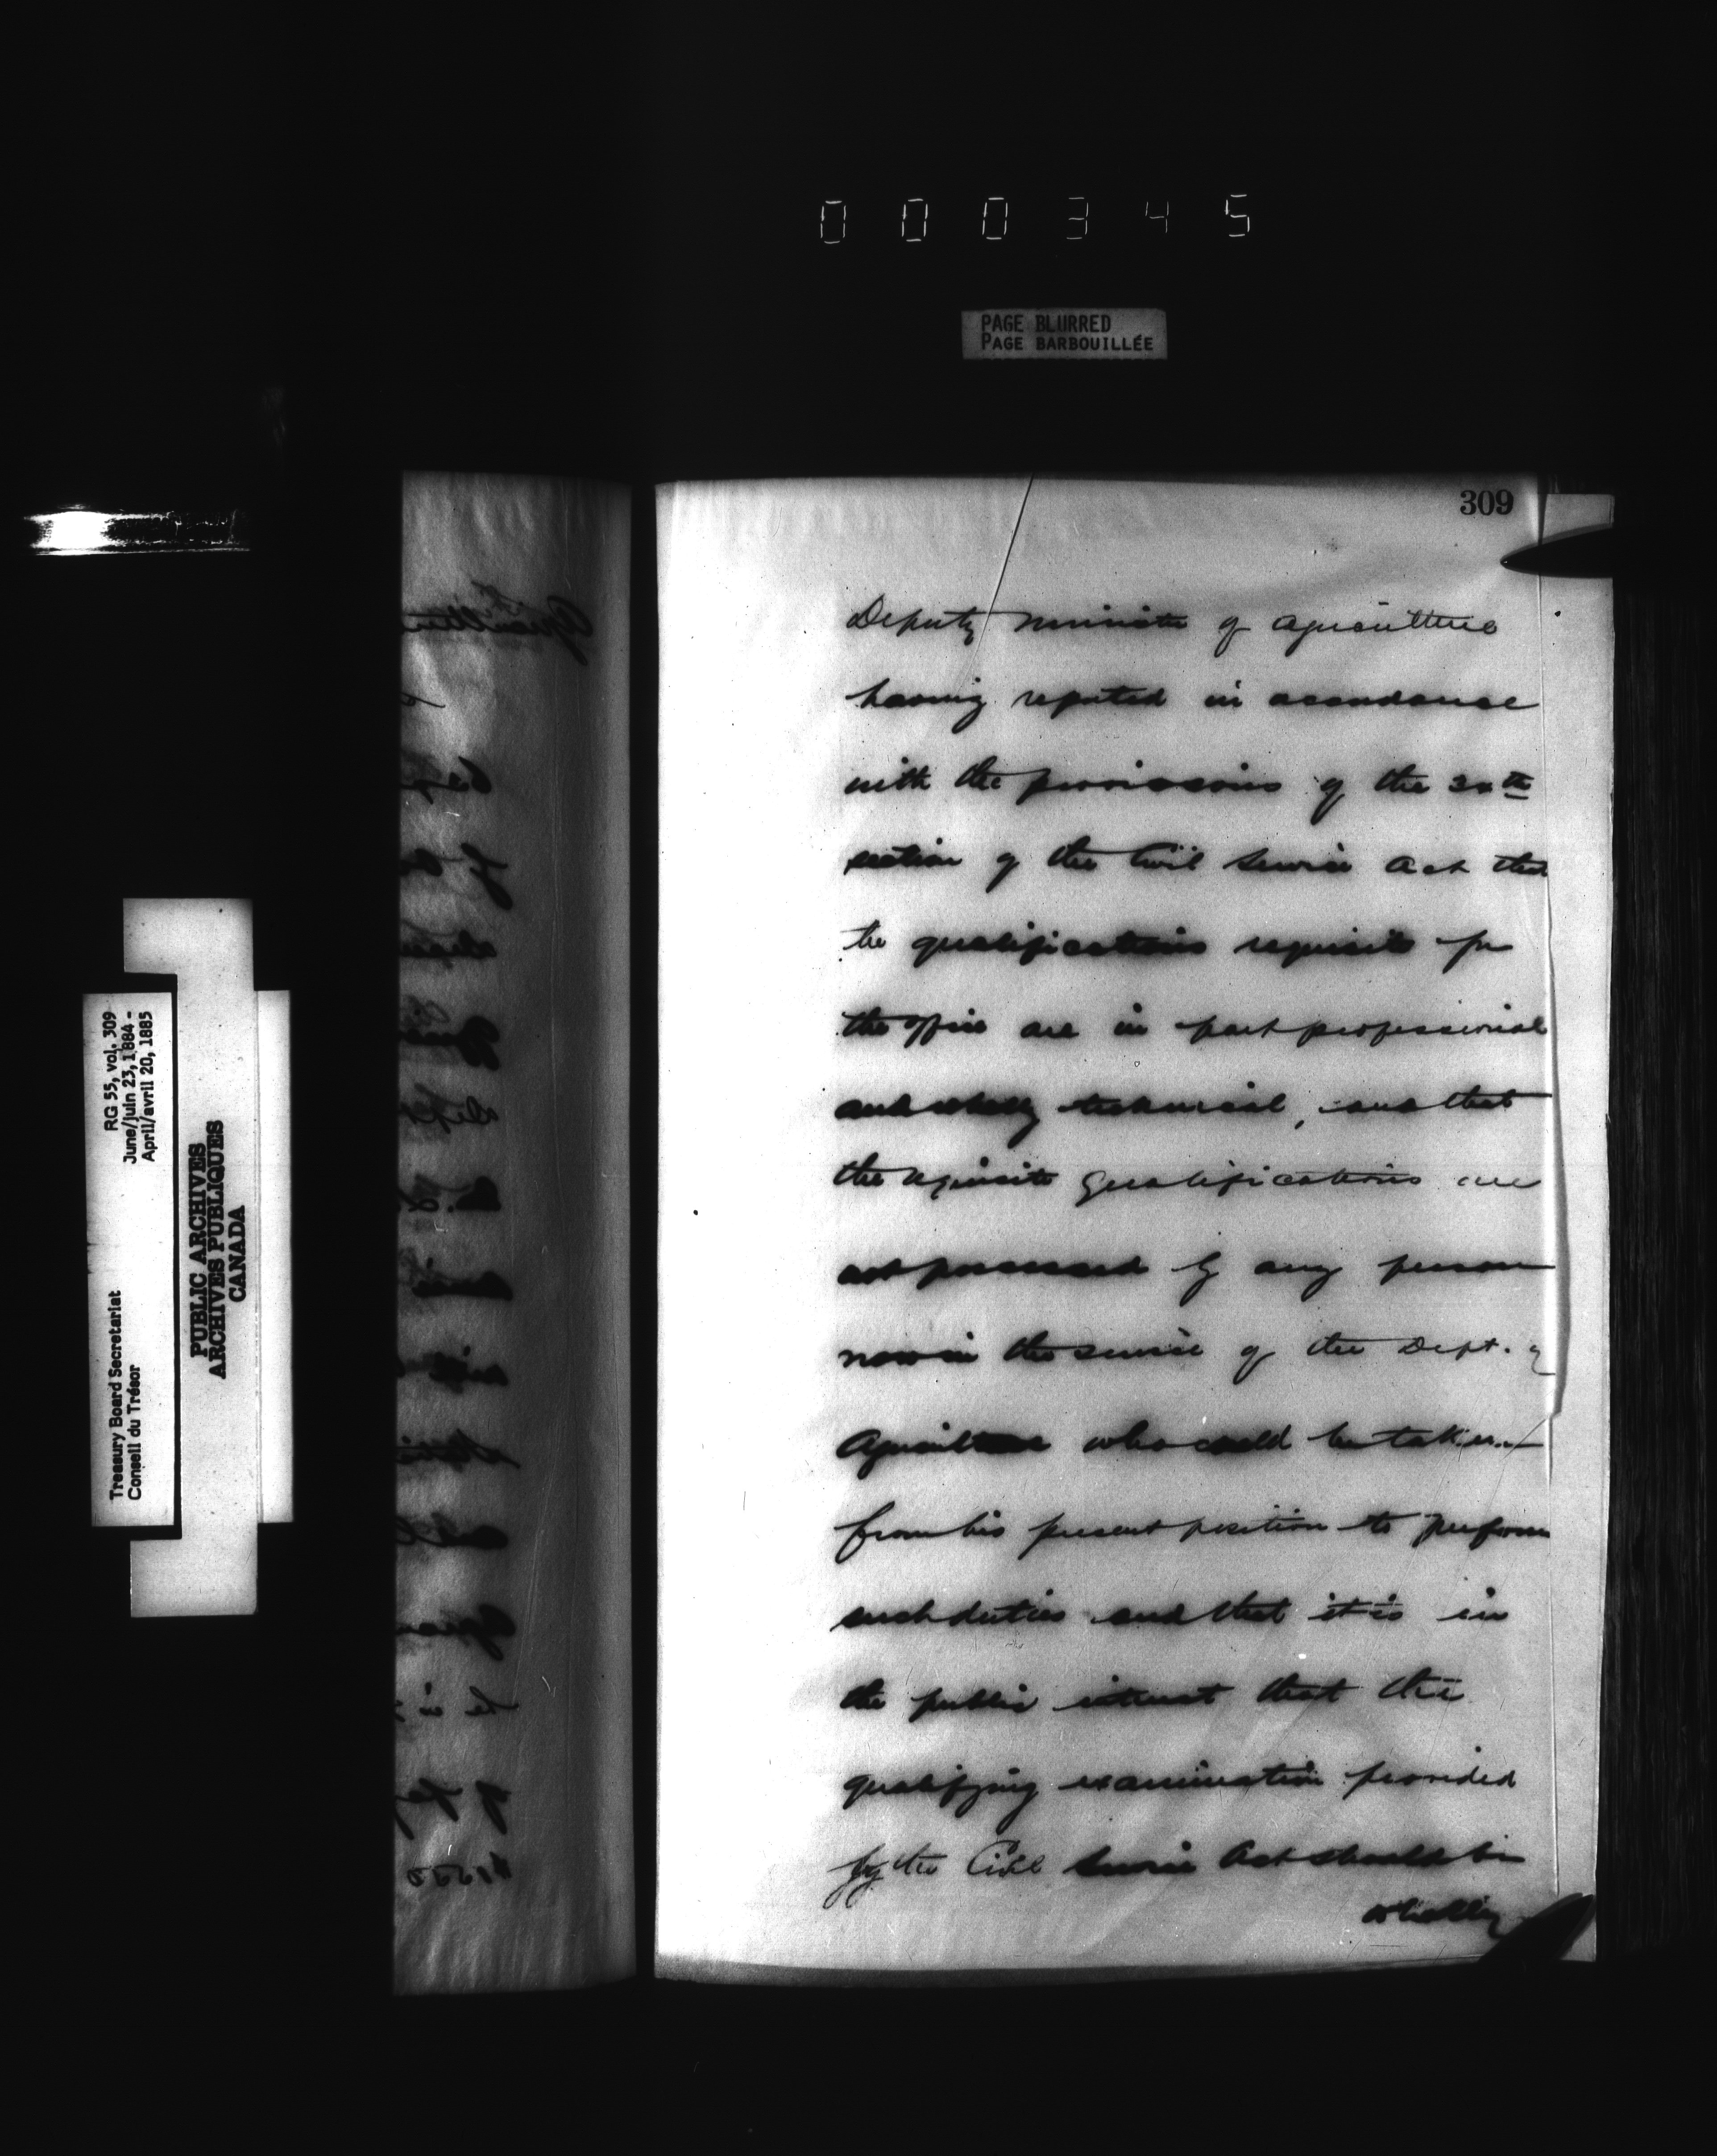 000345
PAGE BLURRED
PAGE BARBOUILLÉE
309
Deputy Minister of Agriculture
having reported in accordance
with the provisions of the
section of the Civil Service Act that
the qualifications requisite for
the office are in part professional
and wholly technical, and that
the requisite qualifications are
not possessed by any person
now in the service of the Dept. of
Agriculture who could be taken
from his present position to perform
such duties and that it is in
the public interest that the
qualifying examination provided
by the Civil Service Act should be
wholly
RG 55, vol. 309
June/juin 23, 1884 -
April/avril 20, 1885
Treasury Board Secretariat
Conseil du Trésor
PUBLIC ARCHIVES
ARCHIVES PUBLIQUES
CANADA